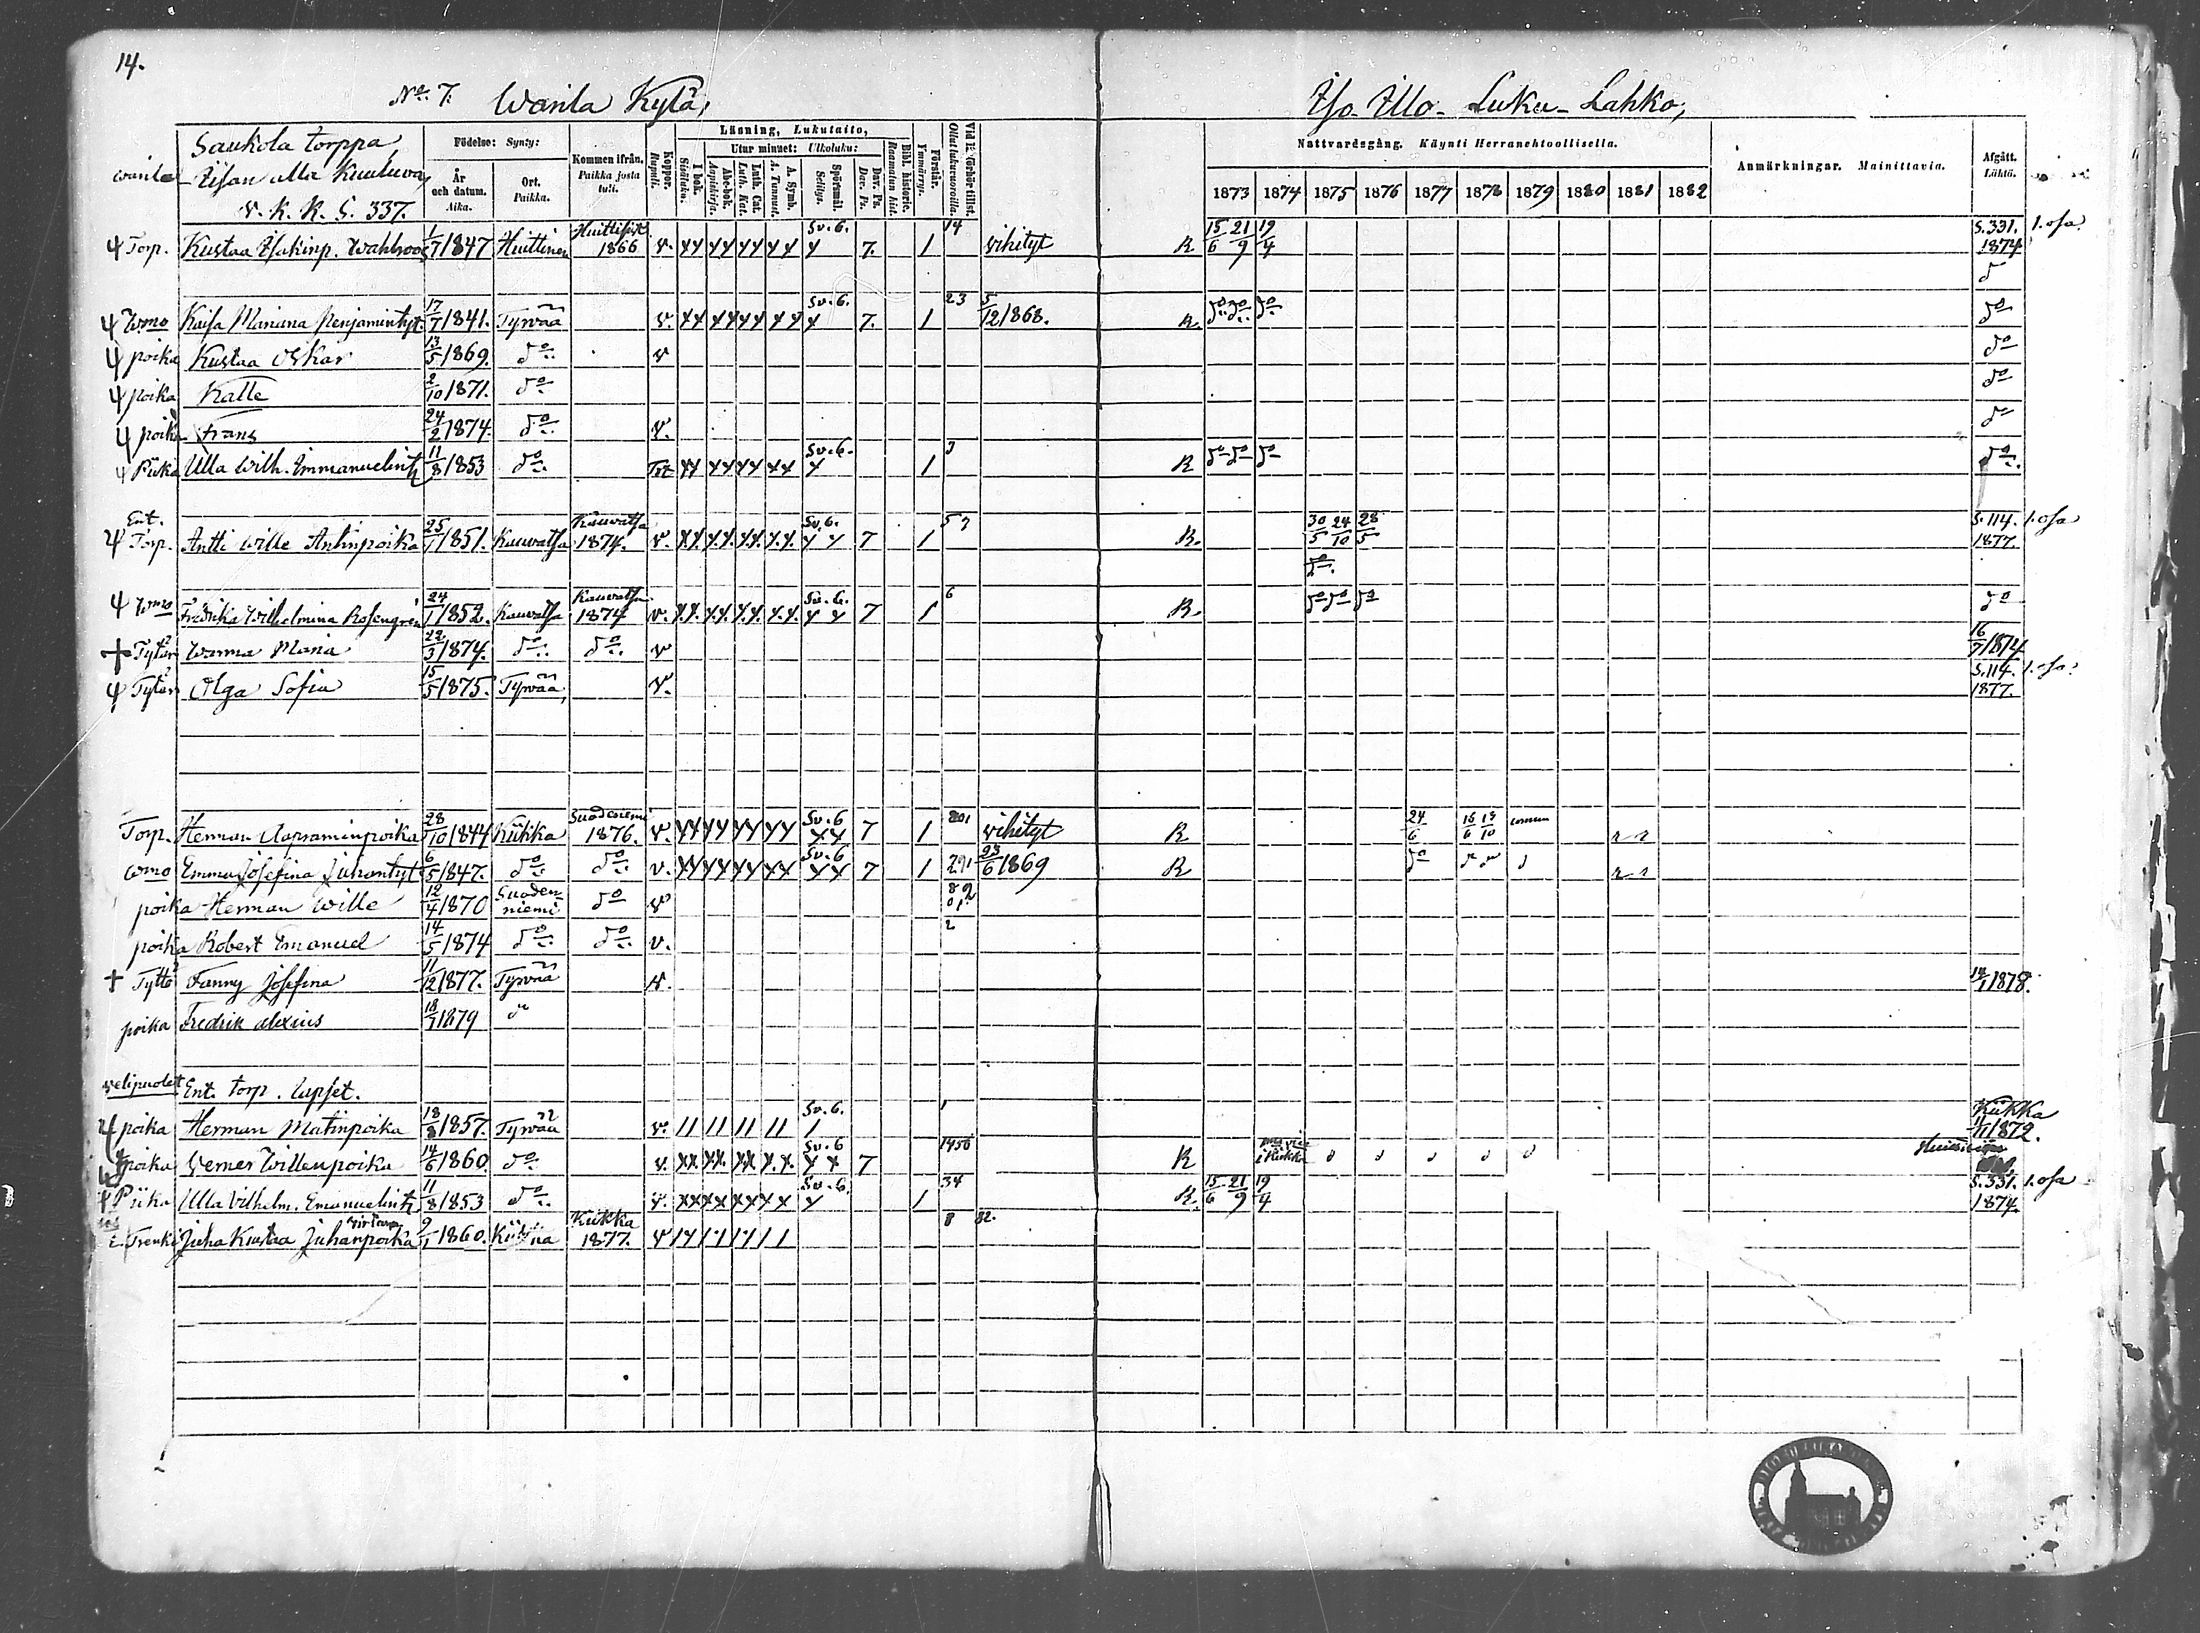 14.
No. 7. Wanla Kylä, Iso Illo- Luku- Lahko,
Saukola torppa
Wanla
Iisan alla Kuuluva,
v. K. K. S. 337.
Födelse: Synty:
År och datum. Aika.
Ort. Paikka.
Kommen ifrån. Paikka josta tuli.
Koppor. Rupuli.
Läsning, Lukutaito,
I bok. Sisäluku.
Utur minnet: Ulkoluku:
Abc-bok. Aapiskirja.
Luth. Cat. Luth. Kat.
A. Symb. A. Tunnust.
Spörsmål. Selitys.
Dav. Ps. Dav. Ps.
Bibl. historie. Raamatun hist.
Förstår. Ymmärrys.
Ollut lukuvuoroilla.
Nattvardsgång. Käynti Herranehtoollisella.
1873 1874 1875 1876 1877 1878 1879 1880 1881 1882
Anmärkningar. Mainittavia.
Afgått. Lähtö.
Torp. Kustaa Isakinp. Wahlroos 1/7 1847 Huittinen 1866 v. Sv. 6. 7. 1 14 vihityt R 15/6 21/9 19/4 S. 331. 1. osa. 1874
Wmo Kaisa Mariana Benjamintyt. 17/7 1841. Tyrvää v. Sv. 6. 7. 1 23 5/12 1868. R. do do do do
poika Kustaa Oskar 13/5 1869. do v do
poika Kalle 2/10 1871. do do
poika Frans 24/2 1874. do v. do
Piika Ulla Wilh. Immanuelint. 11/8 1853 do Sv. 6. 1 3 R do do do do
Ent. Torp. Antti Wille Antinpoika 25/1 1851. Kauvatsa Kauvatsa 1874. v. Sv. 6. 7 1 57 R. 30/5 24/10 28/5 S. 114. 1. osa 1877.
do
Wmo Fredrika Wilhelmina Rosengren 24/1 1852. Kauvatsa Kauvatsa 1874 v. Sv. 6. 7 1 6 R. do do do do
Tytär Wanna Maria 22/3 1874. do do v 16/7 1874
Tytär Olga Sofia 15/5 1875. Tyrvää v. S. 114. 1. osa. 1877.
Torp. Herman Aapraminpoika 28/10 1844 Kiikka Suodenniemi 1876. v. Sv. 6 7 1 vihityt R 24/6 16/6 13/10
wmo Emma Josefina Juhantyt 6/5 1847. do do v. Sv. 6 7 1 291 23/6 1869 R do
poika Herman Wille 12/4 1870 Suodenniemi do v
poika Robert Emanuel 14/5 1874 do do v. 2
Tyttö Fanny Josefina 11/12 1877. Tyrvää v. 14/1 1878.
poika Fredrik Alexius 18/7 1879
velipuolet Ent. torp. lapset.
poika Herman Matinpoika 18/8 1857. Tyrvää v. Sv. 6. 1 Kiikka 1872.
poika Verner Willenpoika 14/6 1860. do v. Sv. 6 7 1456 R
Piika Ulla Vilhelm. Emanuelint. 11/8 1853 do v. Sv. 6. 1 34 R. 15/6 21/9 19/4 S. 331. 1. osa 1874.
Renki Juha Kustaa Juhanpoika 9/1 1860. Kiikka 1877. v 8 82.